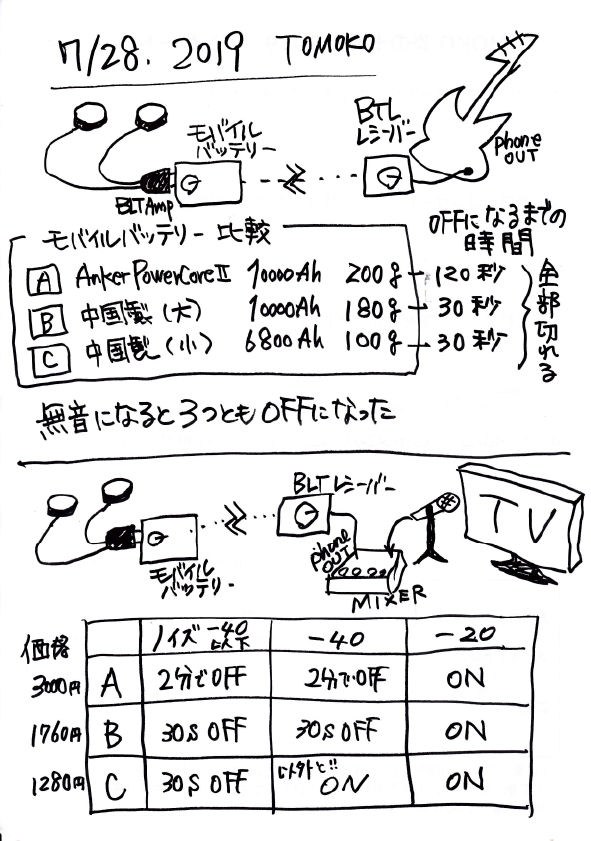 7/28. 2019 TOMOKO
モバイル
バッテリー
BTL
レシーバー
phone
OUT
BLTAmp
OFFになるまでの
時間
モバイルバッテリー 比較
A AnkerPowerCoreII 10000Ah 200g - 120秒
B 中国製(大) 10000Ah 180g - 30秒
C 中国製(小) 6800Ah 100g - 30秒
全部切れる
無音になると3つともOFFになった
BLTレシーバー
TV
phone
OUT
モバイル
バッテリー
MIXER
価格 ノイズ -40以下 -40 -20
3000円 A 2分でOFF 2分でOFF ON
1760円 B 30s OFF 30s OFF ON
1280円 C 30s OFF 以外と!! ON ON